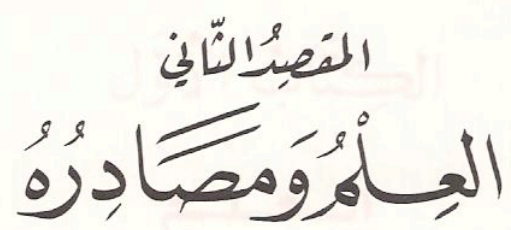 المقصِدُ الثّاني
العِلْمُ وَمَصَادِرُهُ